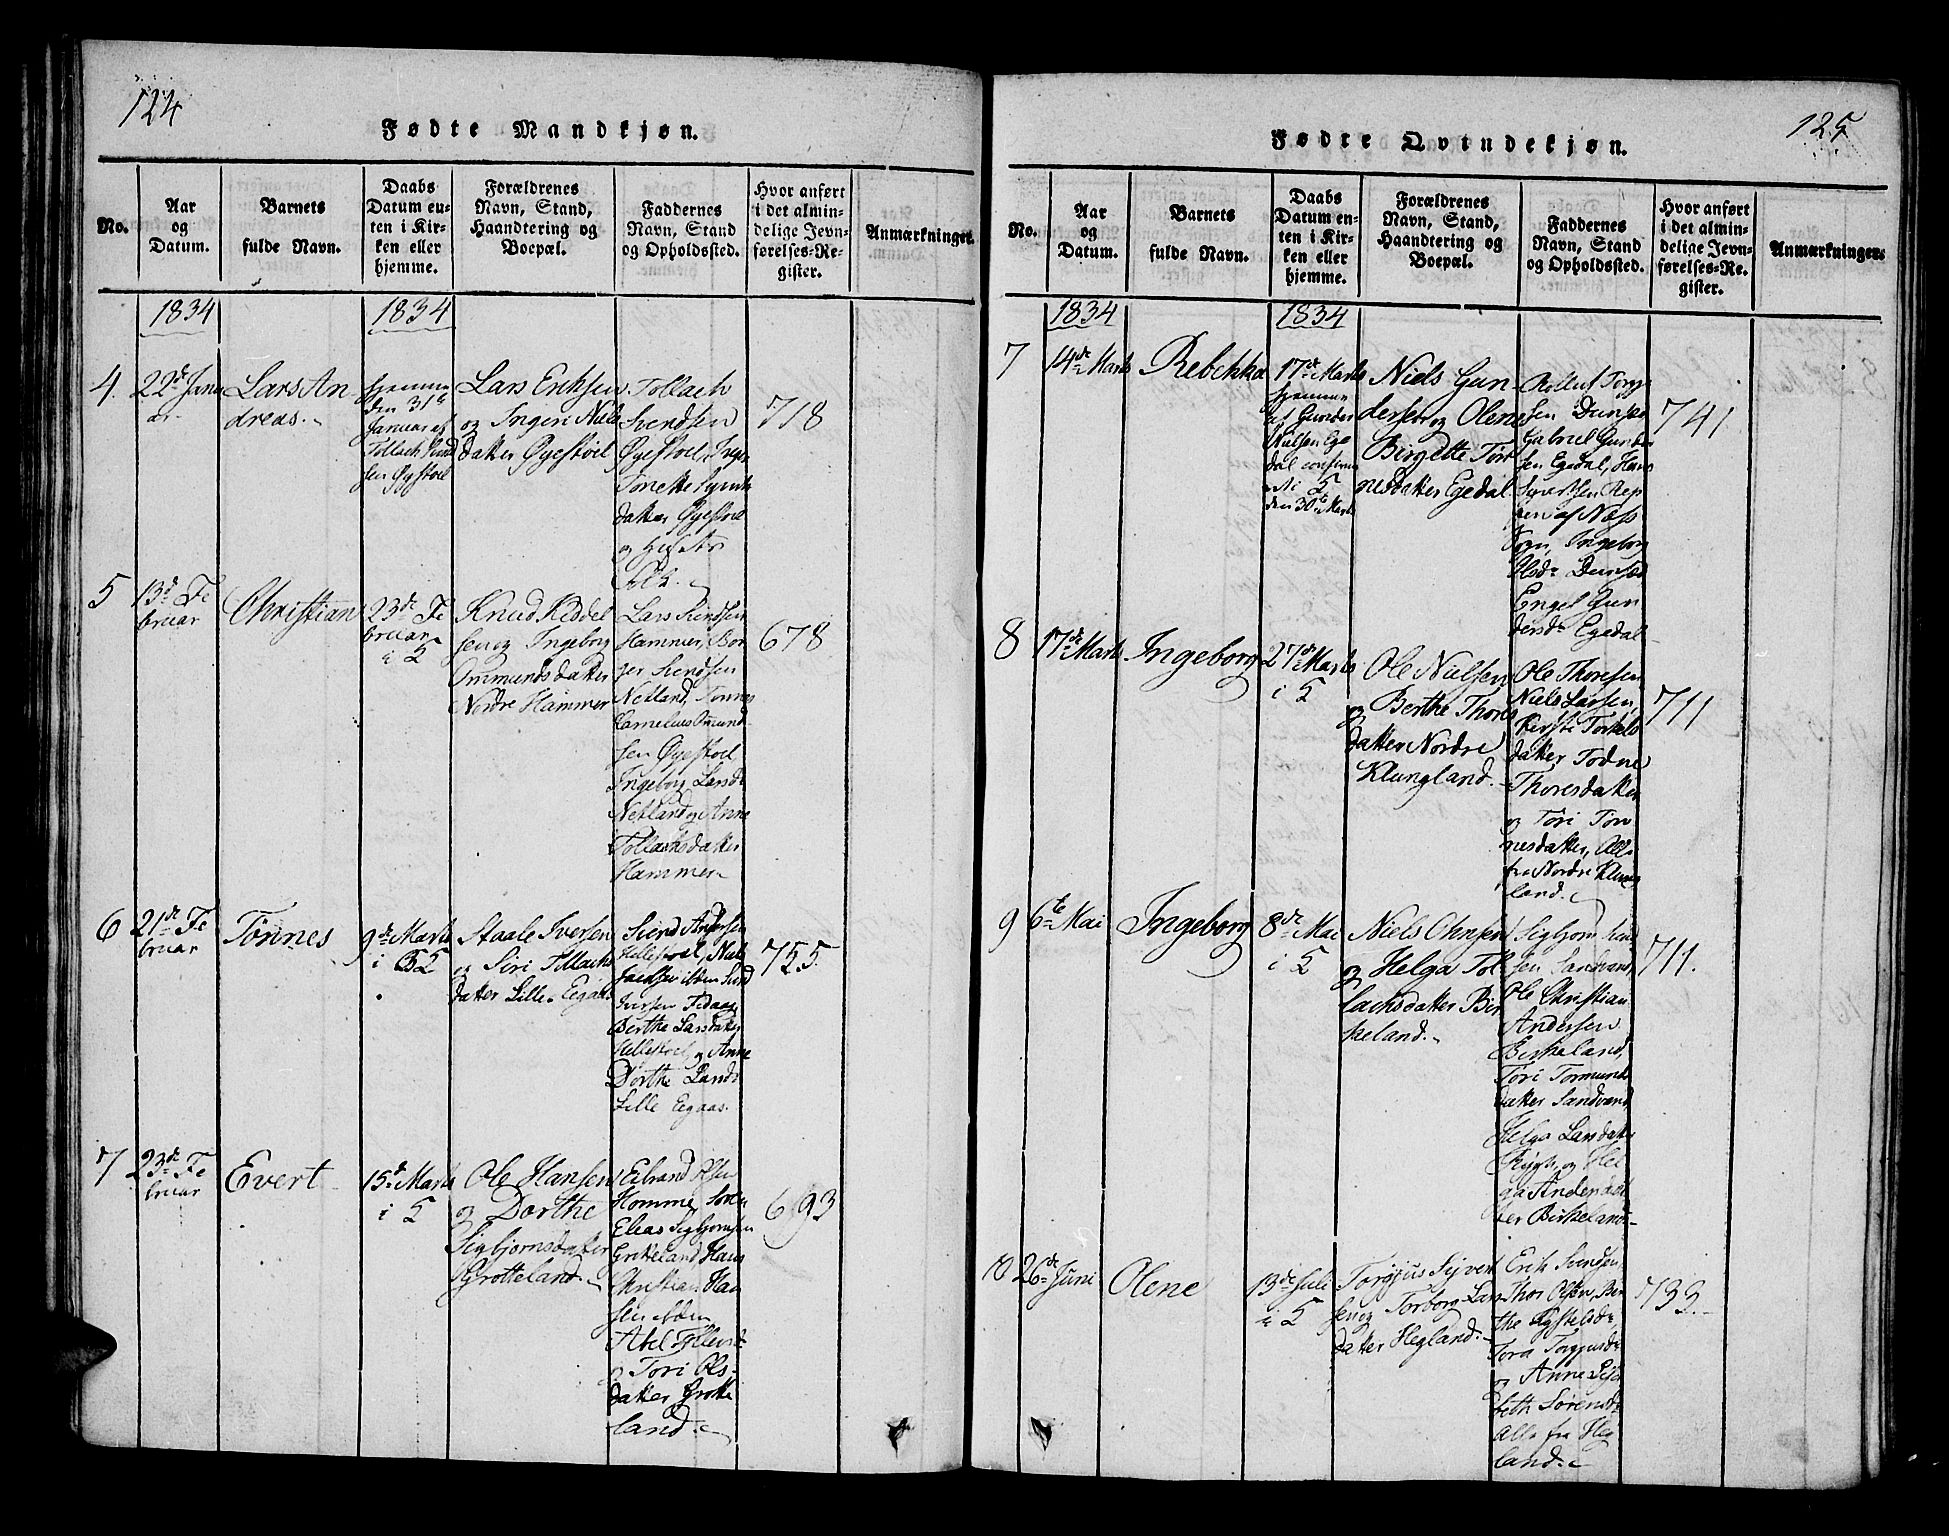 124
Fødte Mandkjøn.
No.
Aar
og
Datum.
Barnets
fulde Navn.
Daabs
Datum en-
ten i Kir-
ken eller
hjemme.
Forældrenes
Navn, Stand,
Haandtering og
Boepæl.
Faddernes
Navn, Stand
og Opholdssted.
Hvor anført
i det almin-
delige Jevn-
førelses-Re-
gister.
Anmærkninger.
1834
1834
4.
22de Janu
ar
Lars An
dreas.
hjemme
den 31te
Januar af
Tollach
sen Øyestoel
Lars Eriksen
og Inger Niels
datter Øyestoel
Tollach
Svendsen
Øyestoel,
Tonette
datter Øyestoel
og
Folk.
718
5
13de Fe
bruar
Christian
23de Fe
bruar
i 5
Knud Reddel
sen og Ingeborg
Ommundsdatter
Nordre Hammer
Lars Svendsen
Hammer, Bor
ger Svendsen
Netland, Tønnes
Cornelius Omund
sen Øyestoel
Ingeborg Larsdr
Netland og Anne
Tollachsdatter
Hammer
678
6
21de Fe
bruar
Tønnes
9de Marts
i 52
Staale Iversen
og Siri Tollachs
datter Lille Eegaas
Svend Andersen
Hellestoel, Niels
ibden Svend
Iversen
Berthe Larsdatter
Hellestoel, og Anne
Dorthe
Lille Eegaas.
755
7
23de Fe
bruar
Evert
15de Marts
i 5
Ole Hansen
og Dorthe
Sigbjørnsdatter
Grotteland
Eilvand Olsen
Homme, Søren
Elias Sigbjørnsen
Grotteland Hans
Christian Han
sen ibden
Abel
og Tori Ols-
datter Grotte
land.
693
125
Fødte Qvindekjøn.
No.
Aar
og
Datum.
Barnets
fulde Navn.
Daabs
Datum en-
ten i Kir-
ken eller
hjemme.
Forældrenes
Navn, Stand,
Haandtering og
Boepæl.
Faddernes
Navn, Stand
og Opholdssted.
Hvor anført
i det almin-
delige Jevn-
førelses-Re-
gister.
Anmærkninger.
1834
1834
7
14de Marts
Rebekka
17de Marts
hjemme
af Gunder
Nielsen Ege
dal confirme
ret i 5
den 30te Marts
Niels Gun-
dersen og Olene
Birgitte Tørr
nesdatter Egedal
Rollut Torg
sen Dunsæd
Gabriel Gunder
sen Egedal, Hans
Syvertsen Rep
pen af Næss
Sogn, Ingeborg
Olsdr Dunsæd
Engel Gun
dersdr Egedal
741
8
17de Marts
Ingeborg
27de Marts
i 5
Ole Nielsen
og Berthe Thores
datter Nordre
Klungland.
Ole Thoresen
Niels Larsen,
Kersti Torkels
datter Todne
Thoresdatter
og Tori Tøn
nesdatter, Alle
fra Nordre Klung
land.
711
9
6te Mai
Ingeborg
8de Mai
i 5
Niels Ohnsen
og Helga Tol
lachsdatter Bir
keland.
Sigbjørn
sen Sandvand,
Ole Christian
Andersen
Birkeland,
Tori Tormunds
datter Sandvand
Helga Larsdatter
og Hel
ga Andersdat
ter Birkeland
711.
10
26de Juni
Olene
13de Juli
i 5
Torgjus Sejvert
sen og Torborg Lars
datter Hegland.
Erik Svendsen,
Thor Olsen, Ber
the
Tora Torgjusdr
og Anne Lisa
beth Sørensdr
Alle fra Heg
land.
733.